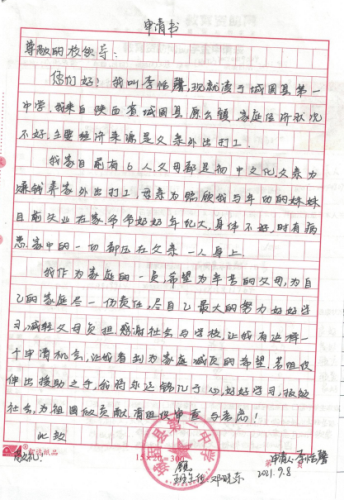 申请书
尊敬的校领导:
您们好!我叫李佳馨,现就读于城固县第一
中学,我来自陕西省城固县原公镇,家庭经济状况
不好,主要经济来源是父亲外出打工。
我家目前有6人,父母都是初中文化,父亲为
赚钱养家外出打工,母亲为照顾我与年幼的妹妹
目前失业在家,爷爷奶奶年纪大,身体不好,时有病
患,家中的一切都压在父亲一人身上。
我作为家庭的一员,希望为辛苦的父母,为自
己的家庭尽一份责任,尽自己最大的努力好好学
习,减轻父母负担。感谢社会与学校,让我有这样一
个申请机会,让我看到为家庭减负的希望,若组织
伸出援助之手,我将永远铭记于心,好好学习,报效
社会,为祖国做贡献,有望组织审查与考虑!
此致
敬礼!
15×20=300
县第一中学
申请人:李佳馨
2021.9.8
班主任